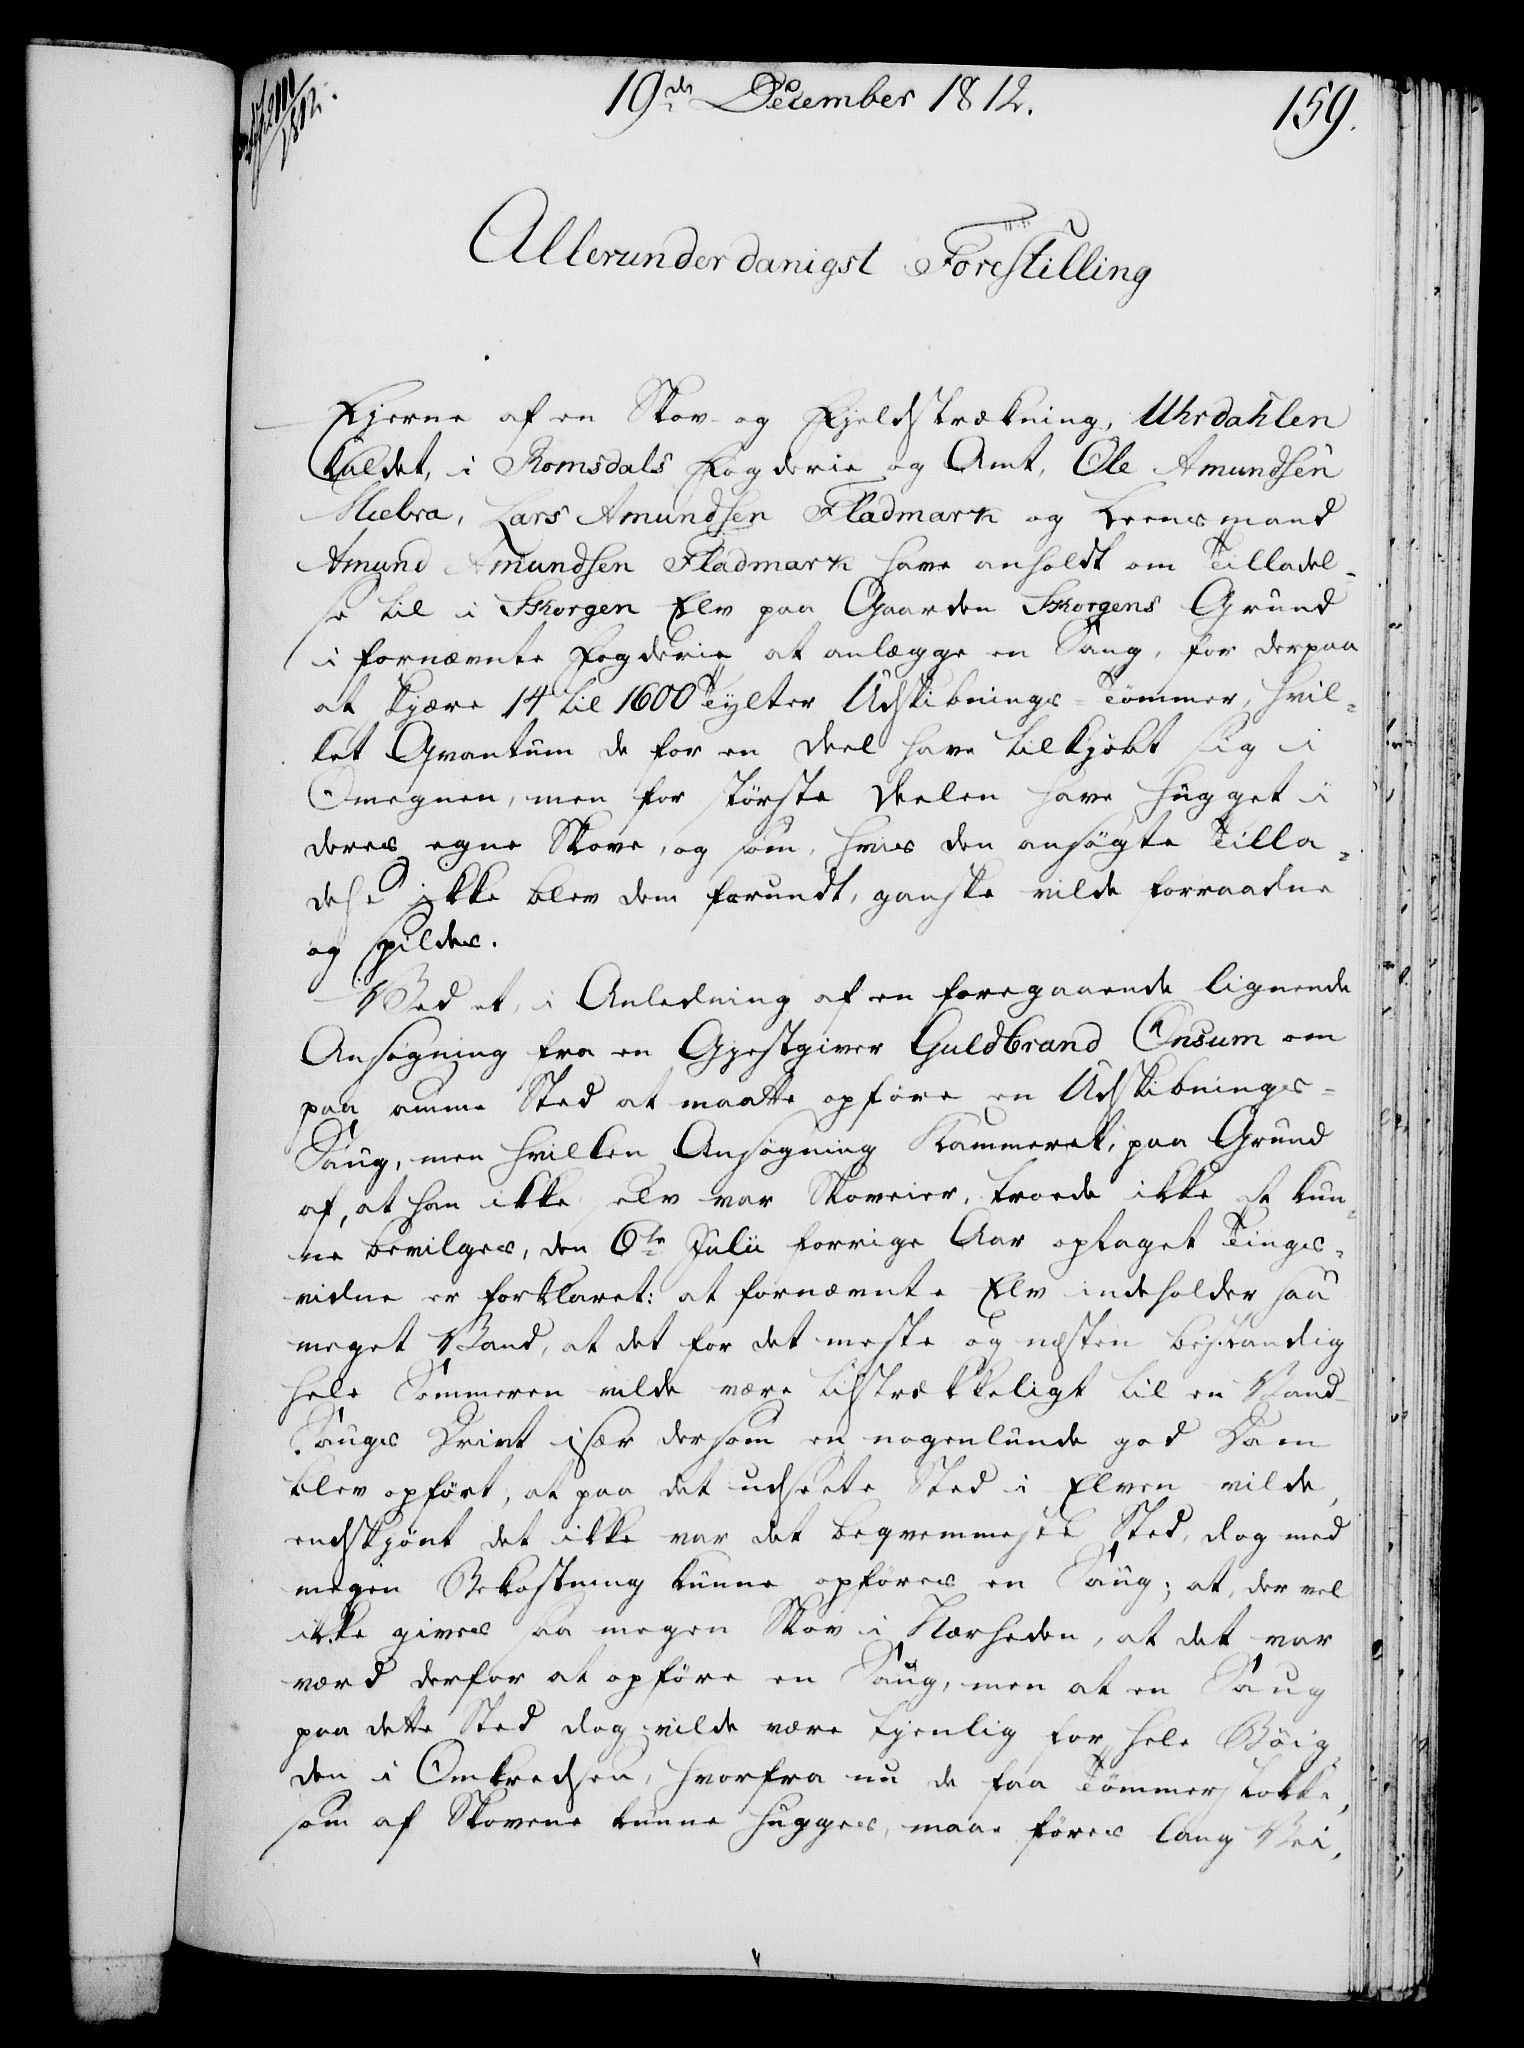 19de December 1812.
159.
Allerunderdanigst Forestilling
Ejerne af en Skov- og Fjeldstrækning, Uhrdahlen
kaldet, i Romsdals Fogderie og Amt, Ole Amundsen
Mæbra, Lars Amundsen Fladmark og Leensmand
Amund Amundsen Fladmark have anholdt om Tilladel-
se til i Skorgen Elv paa Gaarden Skorgens Grund
i fornævnte Fogderie at anlægge en Saug, for derpaa
at skjære 14 til 1600 Tylter Udskibnings-Tømmer, hvil-
ket Qvantum de for en Deel have tilkjøbt sig i
Omegnen, men for største Deelen have hugget i
deres egne Skove, og som, hvis den ansøgte Tilla-
delse ikke blev dem forundt, ganske vilde forraadne
og spildes.
Ved et, i Anledning af en foregaaende lignende
Ansøgning fra en Gjestgiver Guldbrand Onsum om
paa samme Sted at maatte opføre en Udskibnings-
Saug, men hvilken Ansøgning Kammeret, paa Grund
af, at han ikke selv var Skoveier, troede ikke at kun-
ne bevilges, den 6te Julii forrige Aar optaget Tings-
vidne er forklaret: at fornævnte Elv indeholder saa
meget Vand, at det for det meste og næsten bestandig
hele Sommeren vilde være tilstrækkeligt til en Vand-
Saugs Drivt især dersom en nogenlunde god Dam
blev opført, at paa det udseete Sted i Elven vilde,
endskjønt det ikke var det beqvemmeste Sted, dog med
megen Bekostning kunne opføres en Saug; at der vel
ikke gives saa megen Skov i Nærheden, at det var
værd derfor at opføre en Saug, men at en Saug
paa dette Sted dog vilde være tjenlig for hele Bøig-
den i Omkredsen, hvorfra nu de faa Tømmerstokke,
som af Skovene kunne hugges, maae føres lang Vei,